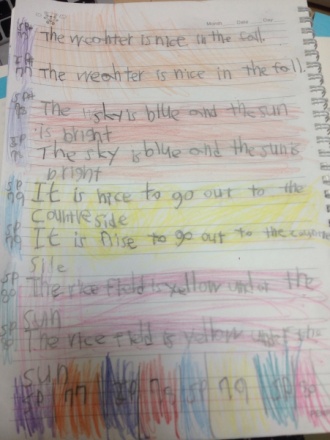 Month Date Day
The weahter is nice in the fall.
77 The weahter is nice in the fall.
The sky is blue and the sun
is bright
The sky is blue and the sun is
bright
It is nice to go out to the
countreside
79 It is nise to go out to the
side
The rice field is yellow under the
sun
The rice field is yellow under the
sun
sp 77 sp 78 sp 79 sp 80